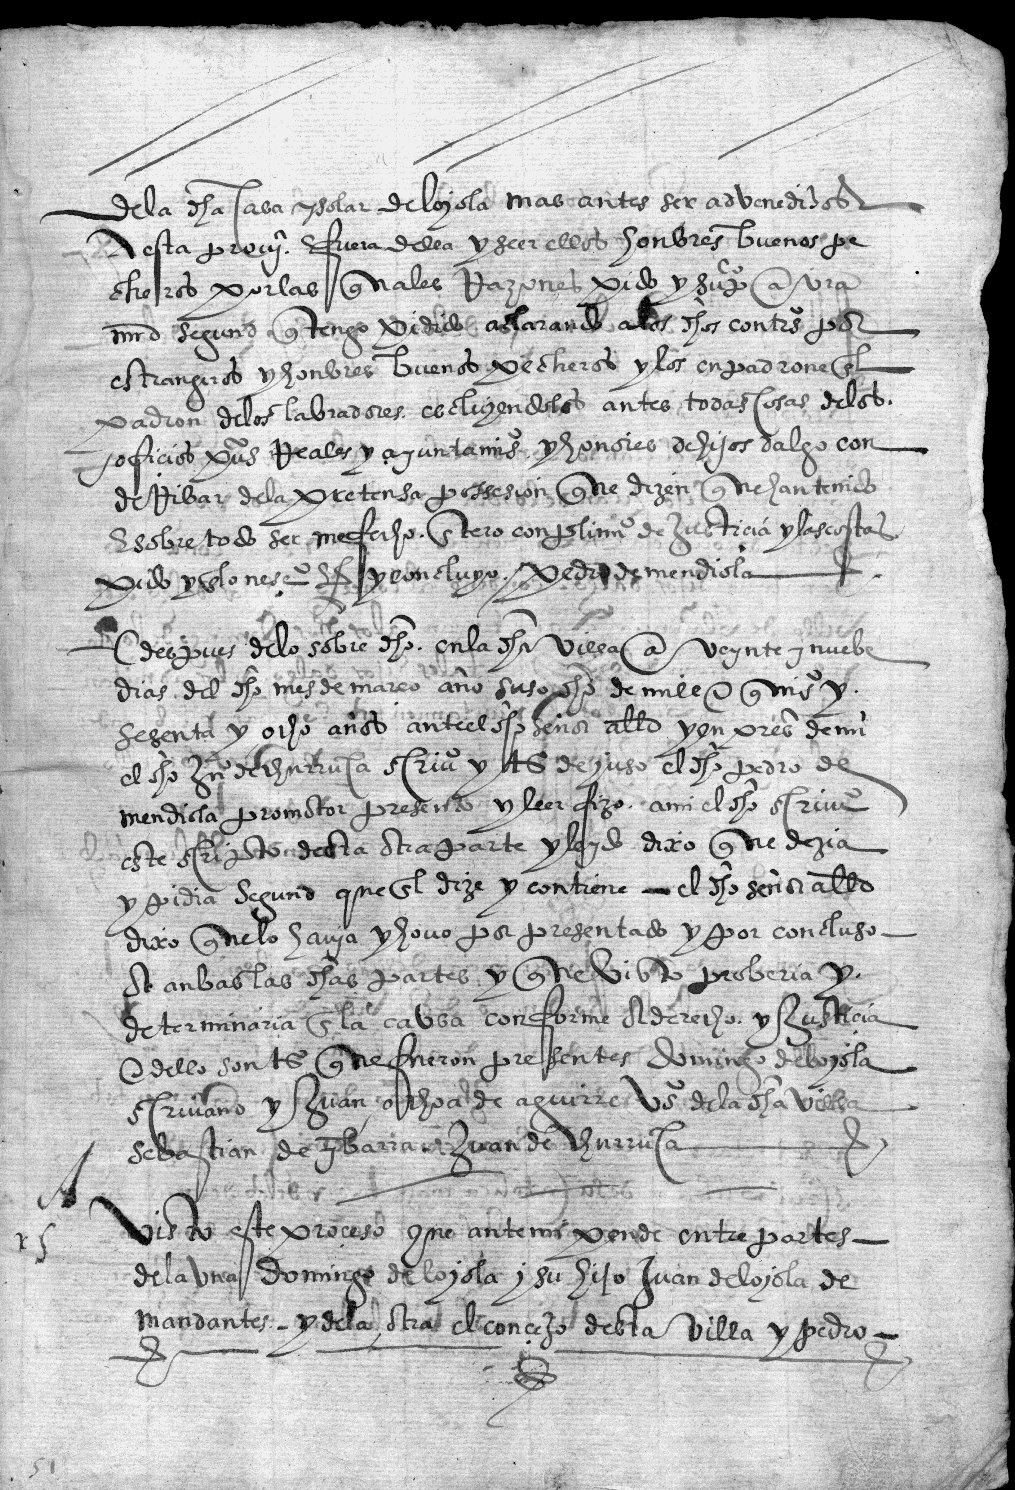 dela dha casa y solar de loyola mas antes ser advenedizos
A esta provi. E fuera della y seer ellos honbres buenos pe
cheros por las quales Razones pido y supco a vra
md segund que tengo pidido aclarando a los dhos contros por
estrangeros y honbres buenos pecheros y los enpadrone en el
padron delos labradores. escluyendolos antes todas cosas delos.
oficios pucos Reales y ayuntamios y honores de hijos dalgo con
deRibar dela pretensa posesion que dizen que han tenido
E sobre todo ser me fecho. entero conplimio de Justicia y las costas
pido y el oneseo y concluyo. Pedro de mendiola
E despues delo sobre dho. en la dha villa a veynte y nuebe
dias del dho mes de março año suso dho de mill e quinios y.
sesenta y ocho años ante el dho señor allo y en presa de mi
el dho Jno de churruca escriuo y ts de yuso el dho pedro de
mendiola promotor presento y leer fizo. a mi el dho escriuo
este escripto desta otra parte y leydo dixo que dezia
y pidia segund que en el dize y contiene el dho señor allo
dixo quelo havia y hovo por presentado y por concluso
de anbas las dhas partes y que visto proberia y.
determinaria en la causa conforme a derecho. y Justicia
e dello son ts que fueron presentes domingo de loyola
escriuano y Juan ochoa de aguirre vos dela dha villa
sebastian de ybarra Juan de churruca
Visto este proceso que ante mi pende entre partes
de la vna domingo de loyola y su hijo Juan de loyola de
mandantes y de la otra el concejo desta villa y pedro
51